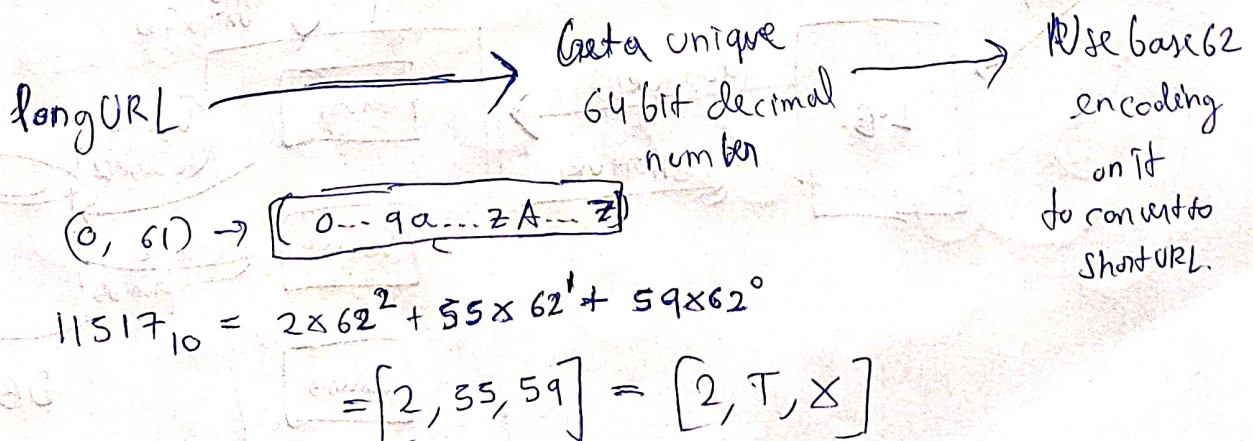 longURL
Get a unique
64 bit decimal
number
Use base 62
encoding
on it
to convert to
Short URL.
(0, 61) → [(0...9a...zA...Z)]
11517₁₀ = 2×62² + 55×62¹ + 59×62⁰
= [2, 55, 59] = [2, T, X]